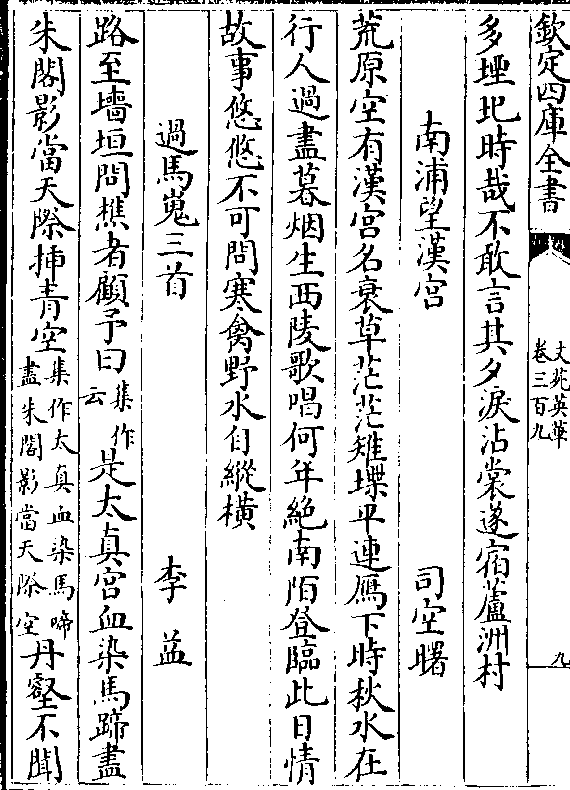 欽定四庫全書
文苑英華
卷三百九
九
多堙圯時哉不敢言其夕淚沾裳遂宿蘆洲村
南浦望漢宮 司空曙
荒原空有漢宮名衰草茫茫雉堞平連雁下時秋水在
行人過盡暮烟生西陵歌唱何年絶南陌登臨此日情
故事悠悠不可問寒禽野水自縱横
過馬嵬三首 李益
路至墻垣問樵者顧予曰集作云是太真宮血染馬蹄盡
朱閣影當天際揷青空集作太真血染馬啼盡朱閣影當天際空丹壑不聞